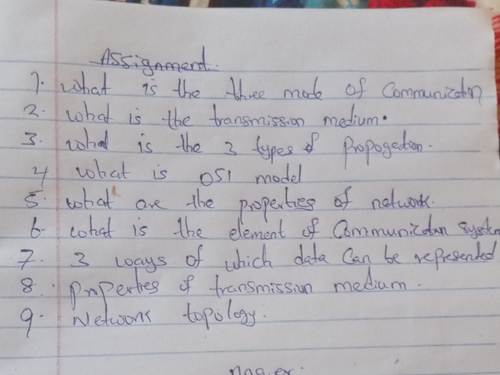 Assignment.
1. What is the three mode of Communication
2. What is the transmission medium.
3. What is the 3 types of Propogation.
4 What is OSI model
5. What are the properties of network.
6. What is the element of Communication system
7. 3 ways of which data can be represented
8. properties of transmission medium.
9. Network topology.